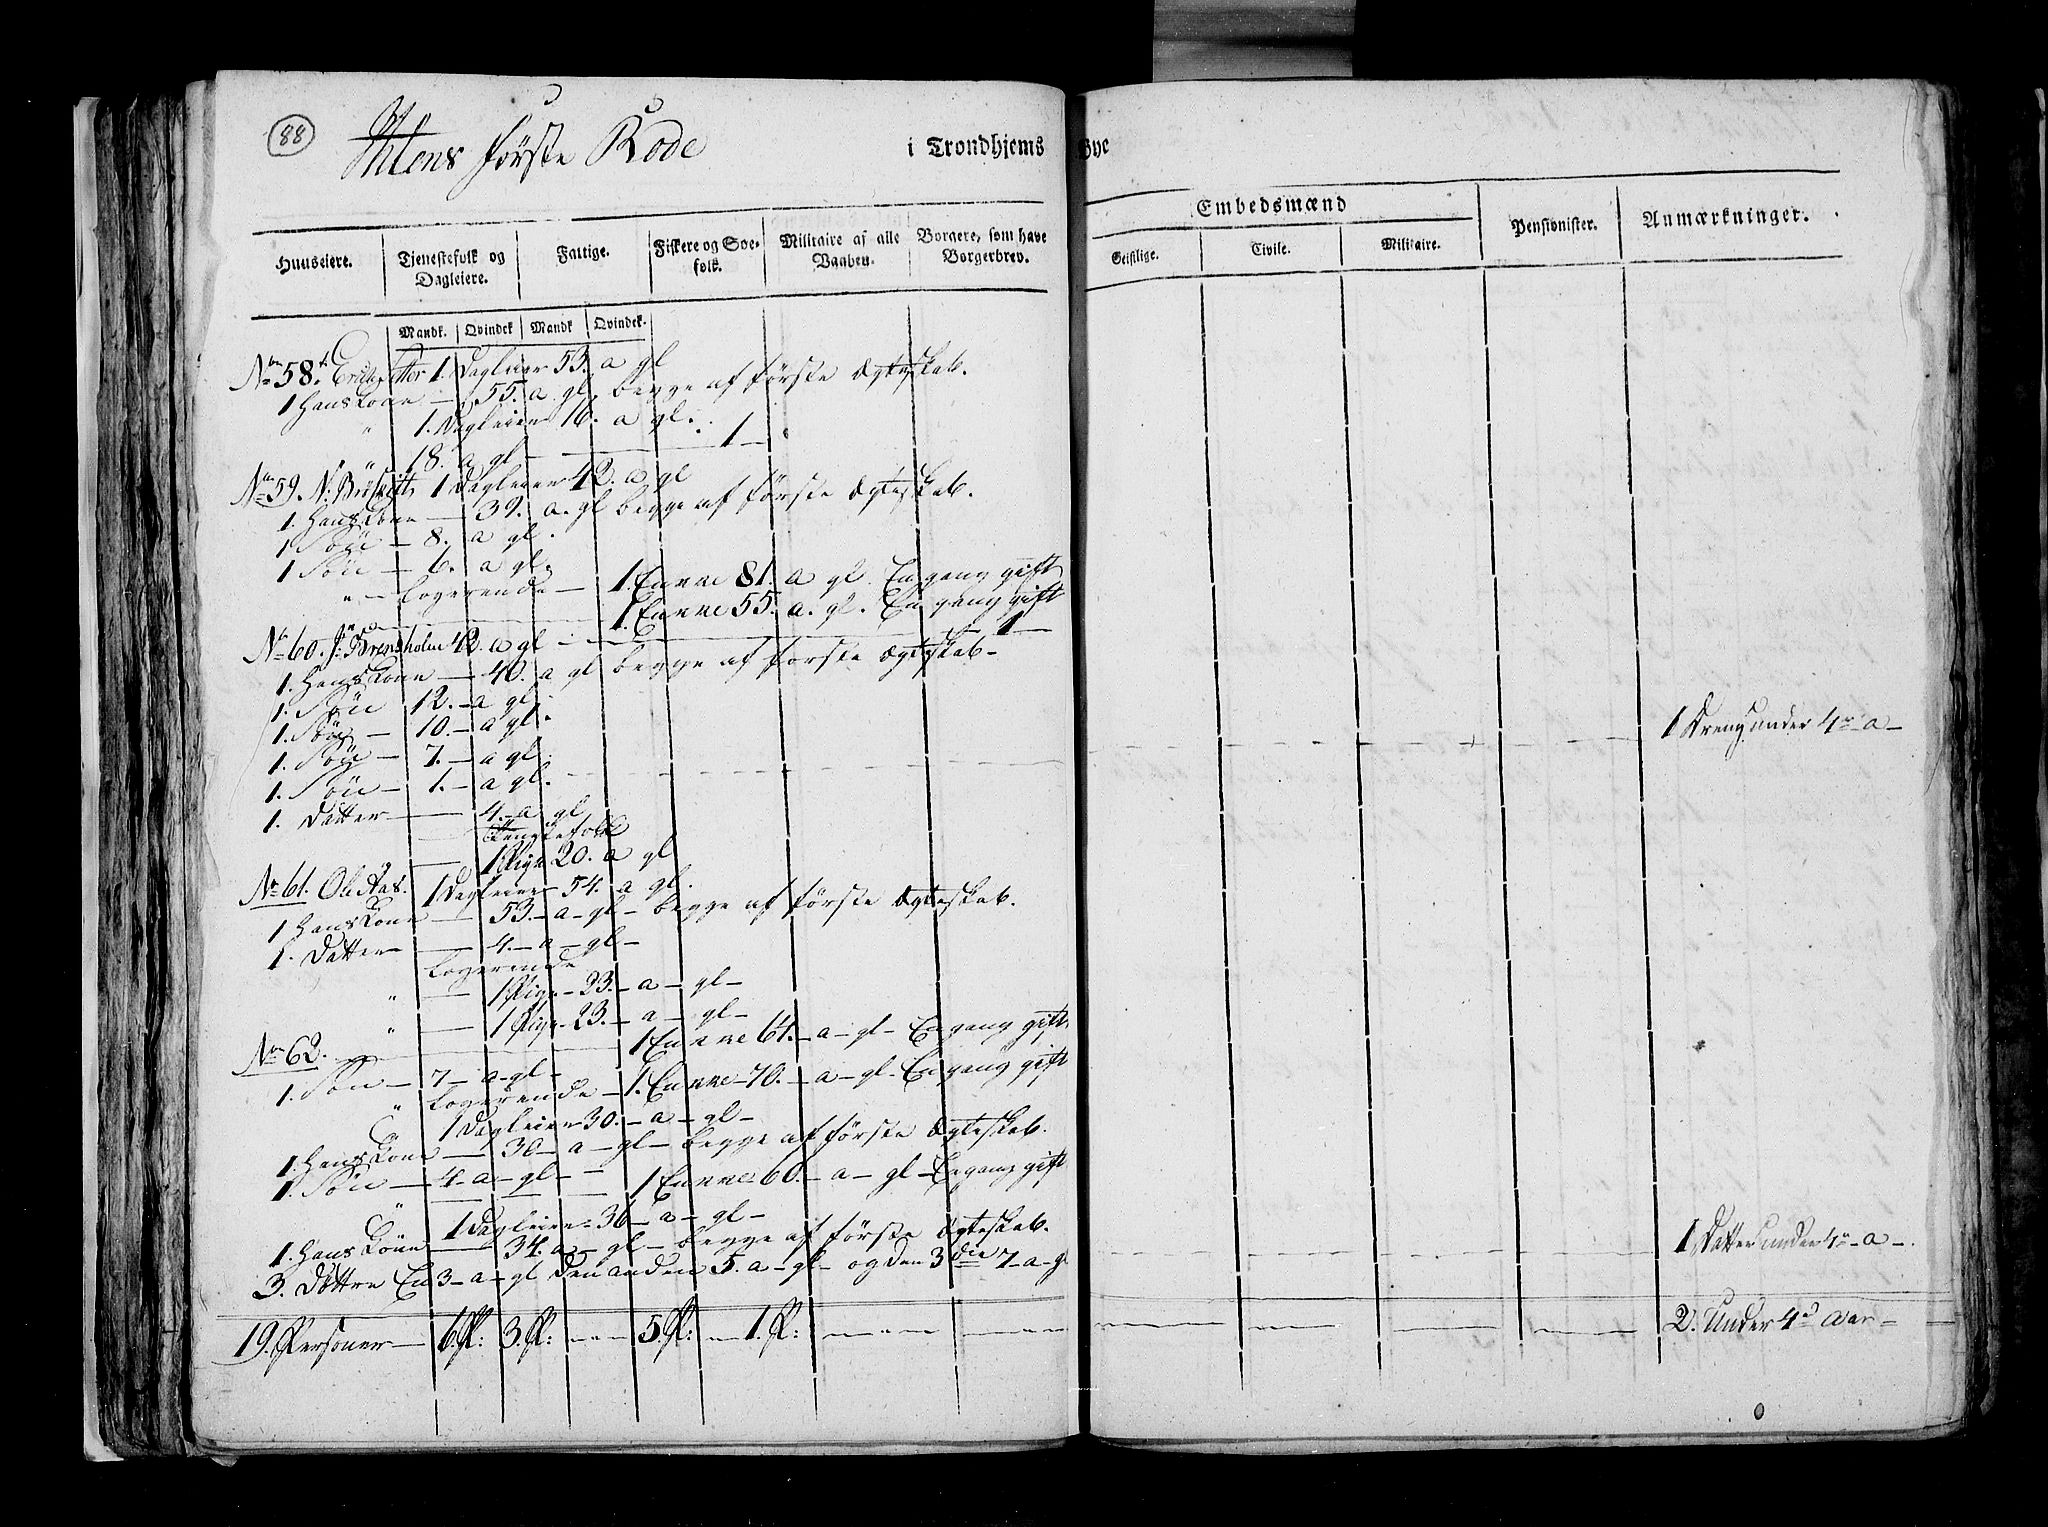 88
Ihlens første Rode i Trondhjems Bye
Embedsmænd
Huuseiere. Tjenestefolk og Dagleiere. Fattige. Fiskere og Søefolk. Militaire af alle Vaaben. Borgere, som have Borgerbrev. Geistlige. Civile. Militaire. Pensionister. Anmærkninger.
Mandk. Qvindek Mandk Qvindek.
No 58. 1. Dagleier 53. a gl
1 Hans Kone — 55. a gl. begge af første Ægteskab.
" 1. Dagleier 16. a gl.
" 18. a gl — 1 —
No 59. N: 1 Dagleier 42. a gl
1. Hans Kone — 39. a. gl begge af første Ægteskab.
1 Søn — 8. a gl.
1 Søn — 6. a gl.
" — Logerende — 1. Enke 81. a gl. En gang gift
1. Enke 55. a. gl. En gang gift
No 60. J: Brensholm 42. a gl — 1 —
1. Hans Kone — 40. a gl begge af første Ægteskab —
1. Søn 12. — a gl.
1. Søn — 10. — a gl. 1 Dreng under 4re a —
1. Søn — 7. — a gl.
1. Søn — 1. — a gl.
1. Datter — 4. — a gl
1 Pige 20. a gl
No 61. Ole Aas. 1 Dagleier 54. a gl.
1 Hans Kone — 53. — a — gl — begge af første Ægteskab.
1. Datter — 4. — a — gl —
Logerende
" — 1 Pige — 23. — a — gl —
" — 1 Pige — 23. — a — gl —
No 62. 1 Enke 64. — a — gl — En gang gift
1. Søn — 7 — a — gl —
" Logerende — 1. Enke — 70. — a — gl — En gang gift
" 1 Dagleier — 30. — a — gl —
1. Hans Kone — 30 — a — gl — begge af første Ægteskab.
1. Søn — 4 — a — gl —
1 Enke 60. — a — gl — En gang gift
" 1 Dagleier — 36 — a — gl —
1. Hans Kone — 34. a — gl — begge af første Ægteskab. 1 Datter under 4re — a —.
3. Døttre En 3 — a — gl den anden 5. a — gl — og den 3die 7 — a — gl
19. Personer — 6. P: 3. P: — 5. P: — 1. P: — 2. Under 4re Aar —